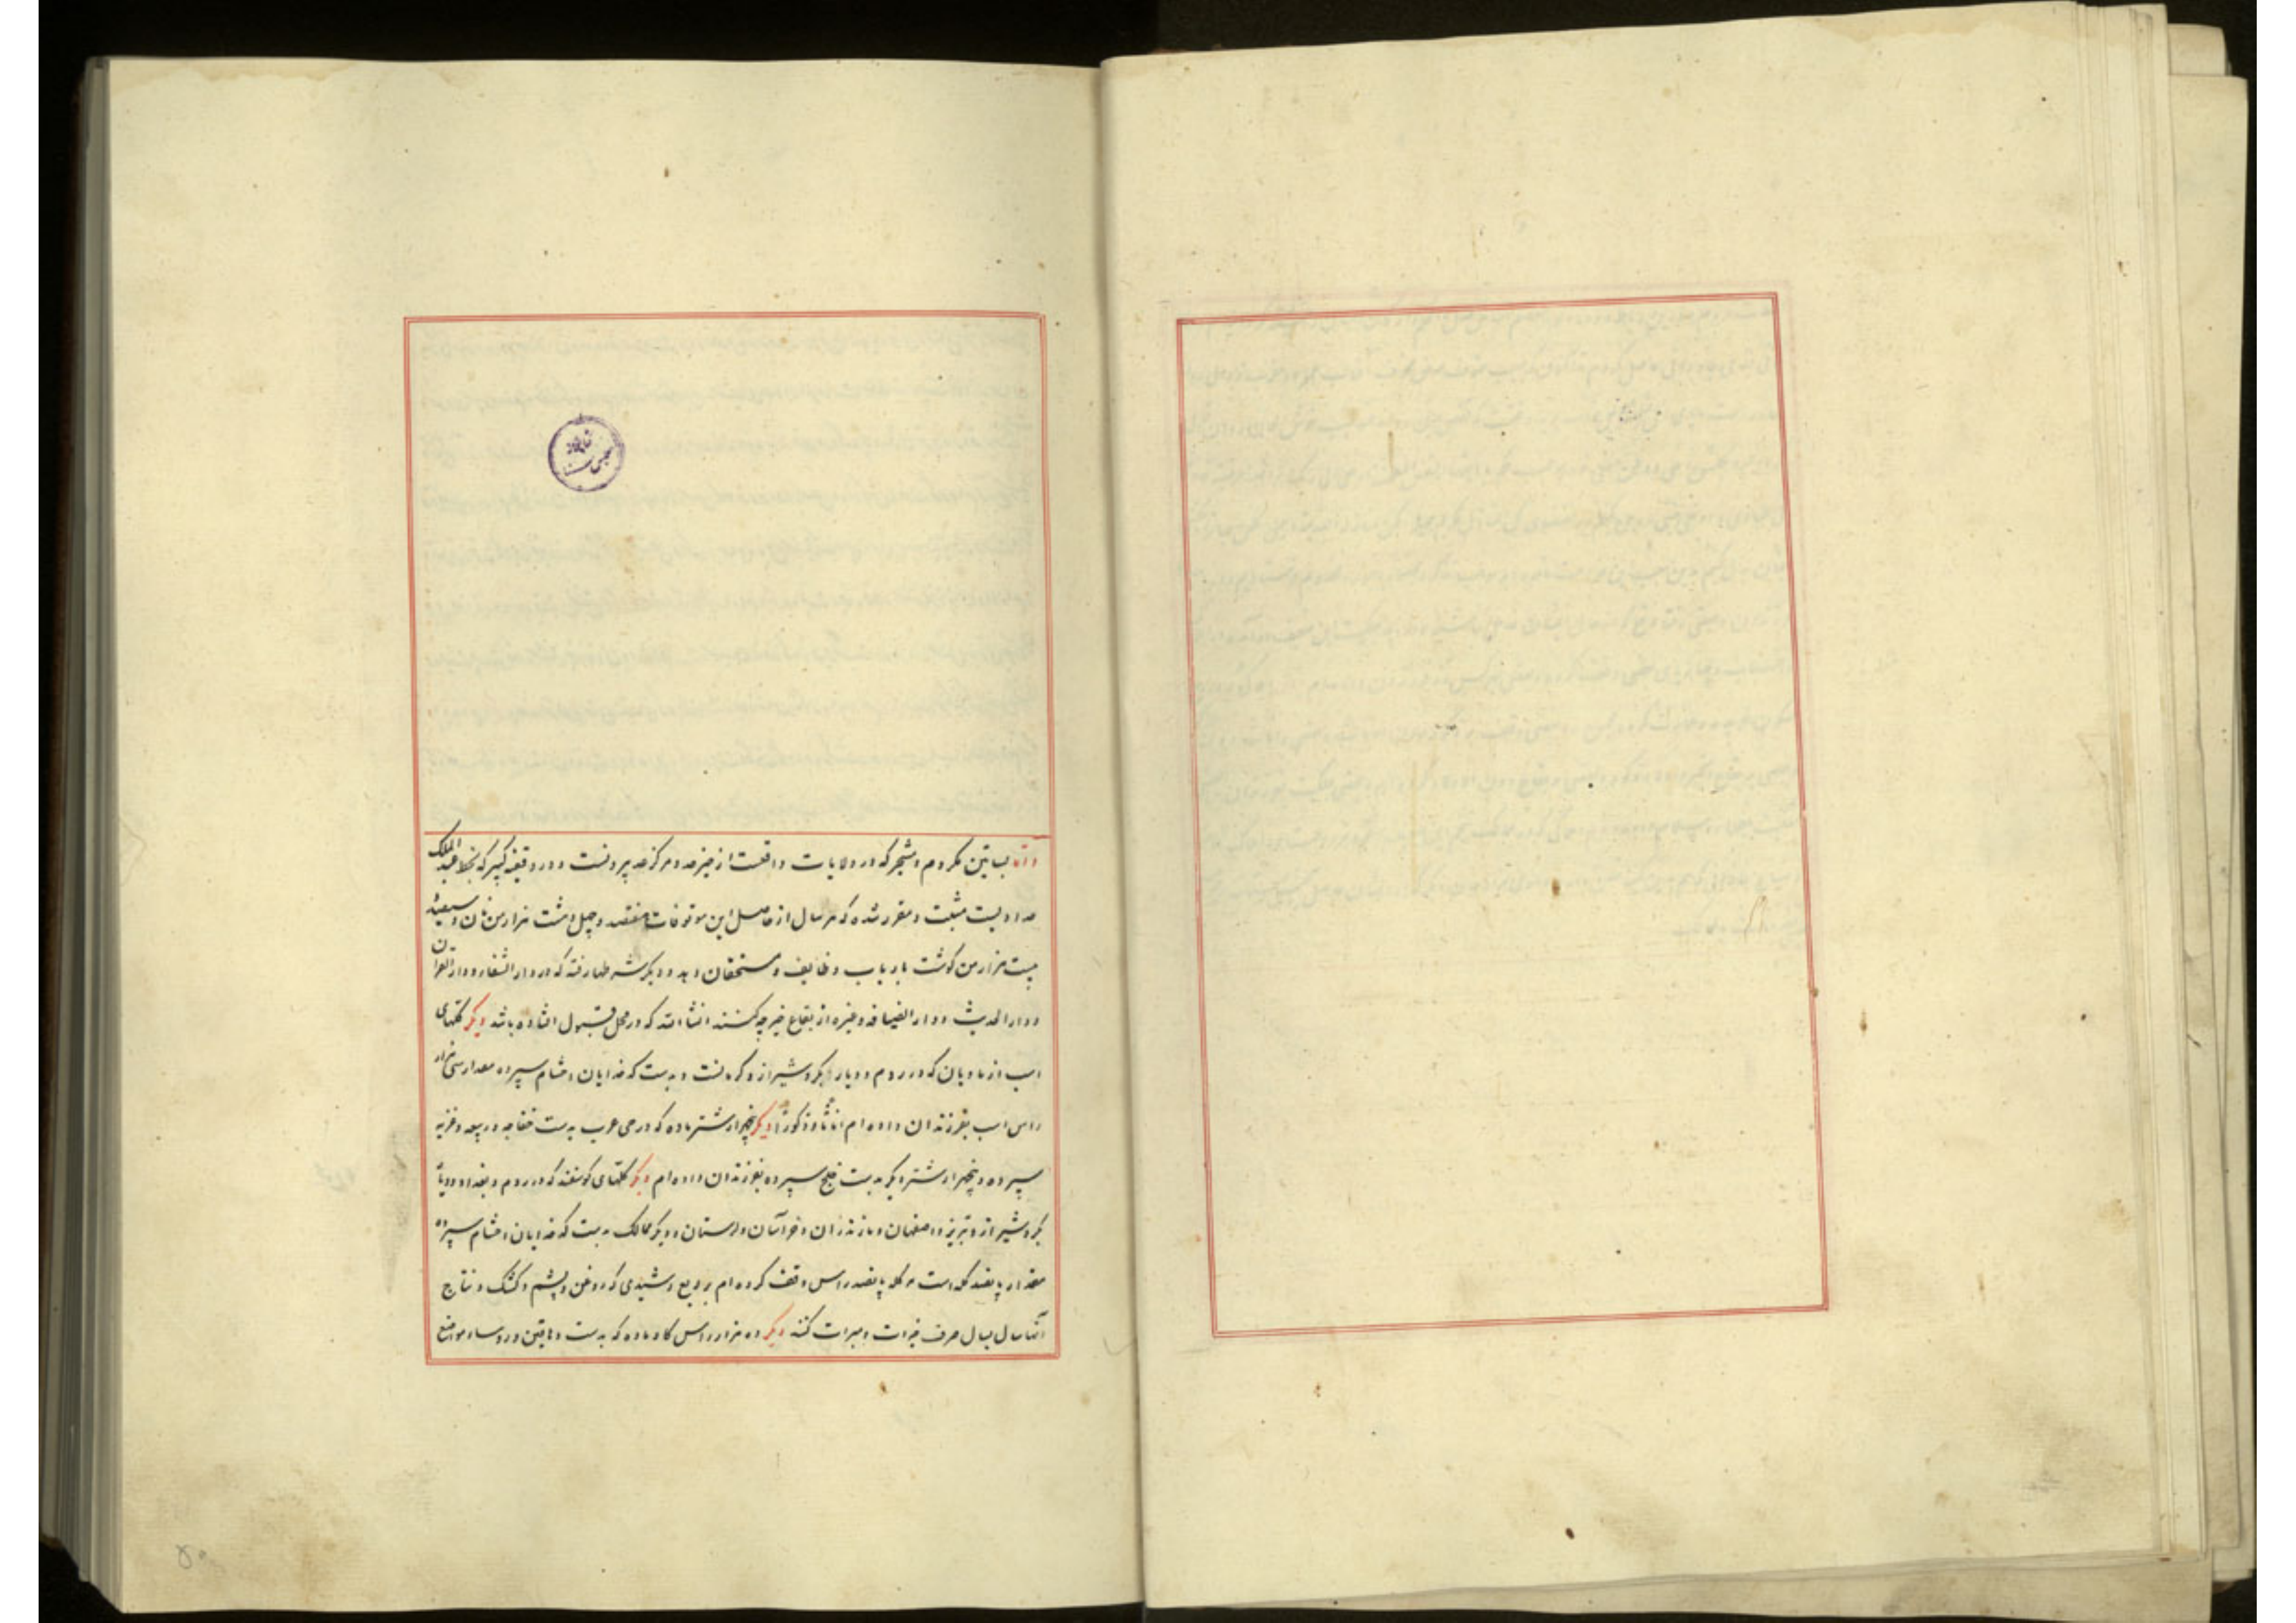 و اما بساتین مکروم و مشجر که در ولایات واقعست از حیز عد و مرکز حد بیرونست و در وقفیه کبیر که بخط عبد الملک
حدادیست مثبت و مقرر شده که هر سال از حاصل این موقوفات هفتصد و چهل و هشت هزار من نان و سیصد و
بیست هزار من گوشت بارباب وظایف و مستحقان دهد و دیگر شرطها رفته که در دار الشفا و دار القرآن
و دار الحدیث و دار الضیافه و غیره از بقاع خیر چه کنند انشا الله که در محل قبول افتاده باشد دیگر گلهای
اسب از مادیان که در روم و دیار بکر و شیراز و کرمانست و بدست کدخدایان احشام سپرده مقدار سی هزار
راس اسب بفرزندان داده‌ام اناثا و ذکورا دیگر پنجهزار شتر ماده که در حی عرب بدست خفاجه و ربیعه و غزیه
سپرده و پنجهزار شتر دیگر بدست خلج سپرده بفرزندان داده ام دیگر گلهای گوسفند که در روم و بغداد و دیار
بکر و شیراز و تبریز و اصفهان و مازندران و خراسان و لرستان و دیگر ممالک بدست کدخدایان احشام سپرده
مقدار پانصد گله است هر گله پانصد راس وقف کرده ام بر ربع رشیدی که روغن و پشم و کشک و نتاج
آنها سال بسال صرف خیرات و مبرات کنند دیگر ده هزار راس گاو ماده که بدست دهاقین و روساء مواضع